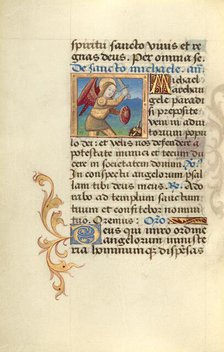 spiritu sancto vivis et re
gnas deus. Per omnia se.
De sancto michaele. añ.
Michael
archan
gele paradi
si preposite
veni in adiu
torium popu
lo dei: et velis nos defendere a
potestate inimici et tecum du
cere in societatem domini. V.
In conspectu angelorum psal
lam tibi deus meus. Ro. Ado
rabo ad templum sanctum
tuum et confitebor nomini
tuo. Oremus: Oro
Deus qui miro ordine
angelorum ministe
ria hominumque dispensas